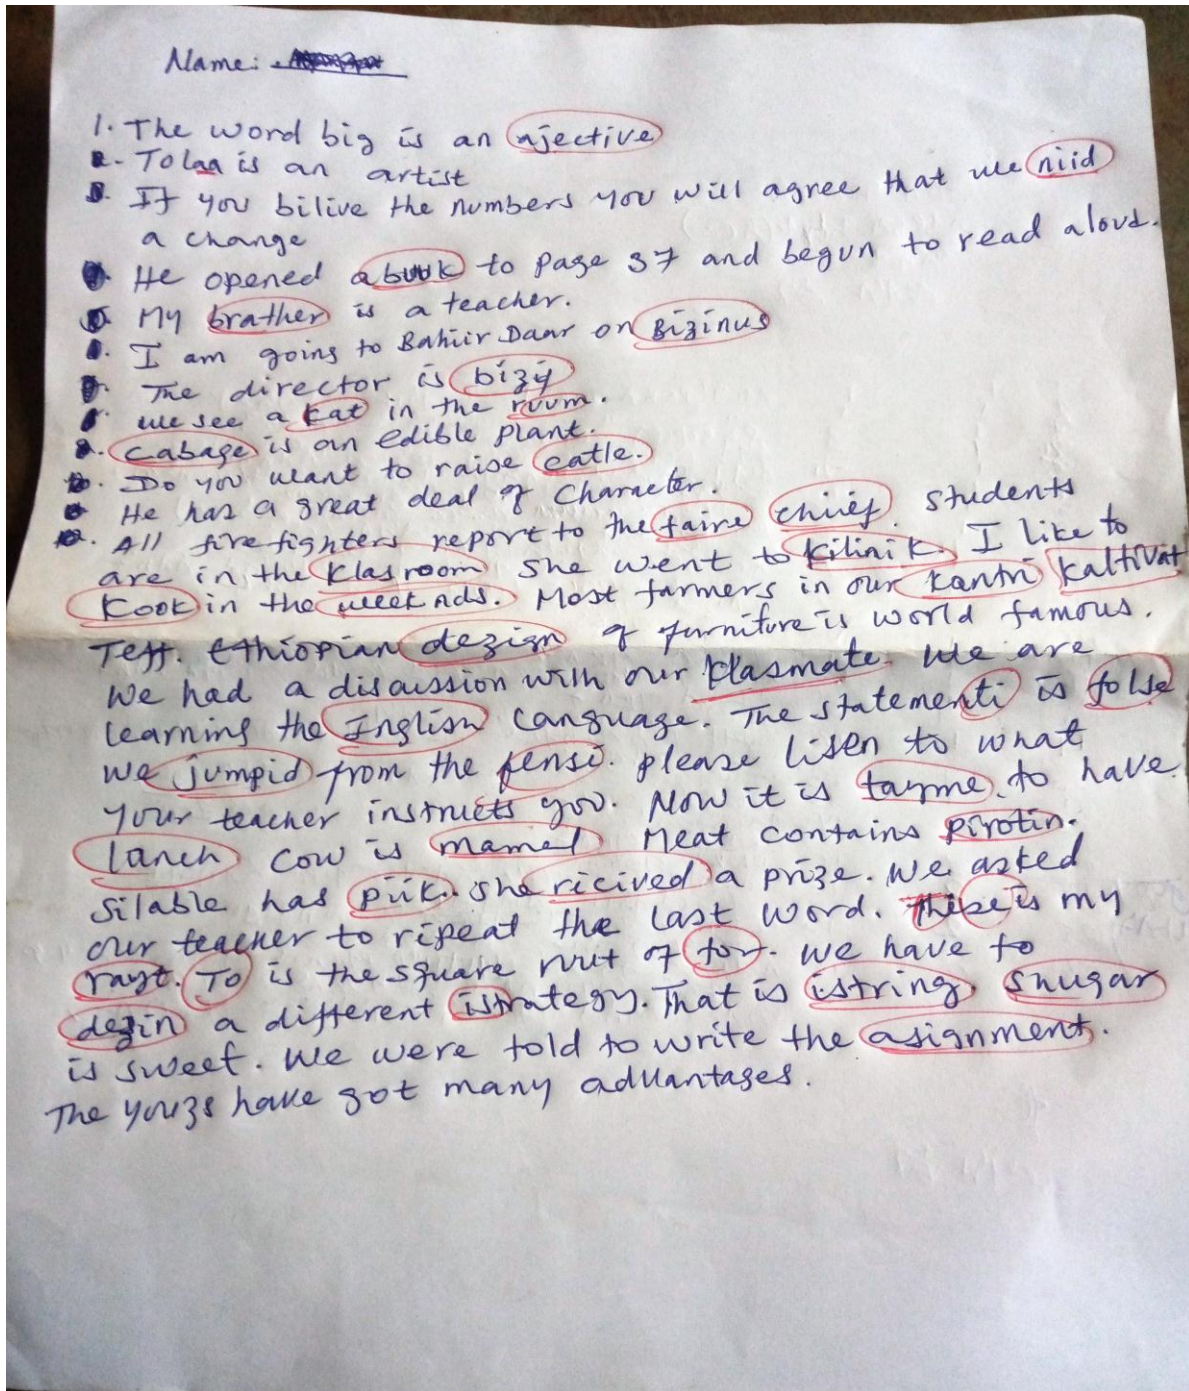 Name:
1. The word big is an ajective
2. Tolaa is an artist
3. If you bilive the numbers you will agree that we niid
a change
He opened a buuk to page 37 and begun to read aloud.
My brather is a teacher.
I am going to Bahiir Daar on Bizinus
The director is bizy
we see a kat in the ruum.
cabage is an edible plant.
Do you want to raise catle.
He has a great deal of Character.
All firefighters report to the faire chiief. Students
are in the klasroom She went to kilinik. I like to
kook in the week nds. Most farmers in our kantri kaltivat
Teff. Ethiopian dezign of furniture is world famous.
We had a discussion with our klasmate. We are
learning the Inglish language. The statementi is folse
we jumpid from the fensi. please lisen to what
your teacher instructs you. Now it is tayme. to have
lanch cow is mamel Meat contains pirotin.
Silable has piik. She ricived a prize. We asked
our teacher to ripeat the last word. these is my
rayt. To is the square ruut of for. We have to
dezin a different istrategy. That is istring. Shugar
is sweet. We were told to write the asignment.
The youzs have got many advantages.